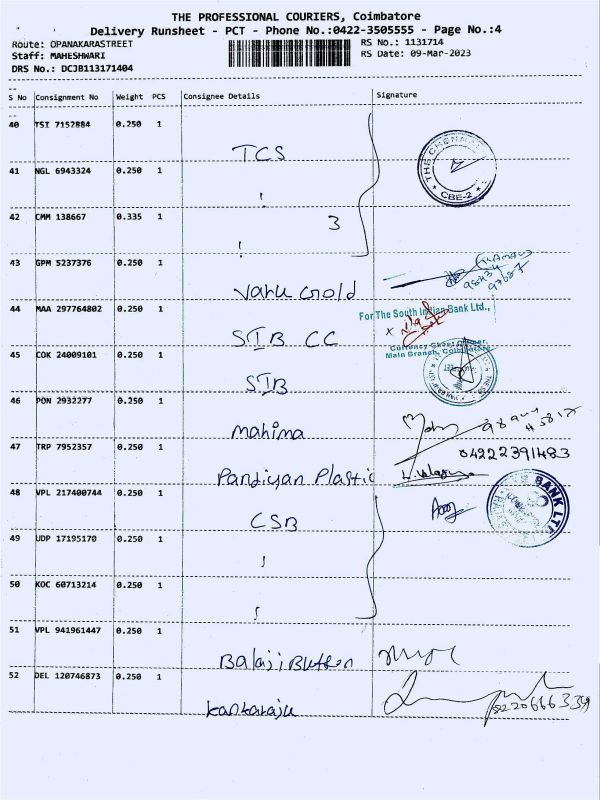 THE PROFESSIONAL COURIERS, Coimbatore
Delivery Runsheet - PCT - Phone No.:0422-3505555 - Page No.:4
Route: OPANAKARASTREET RS No.: 1131714
Staff: MAHESHWARI RS Date: 09-Mar-2023
DRS No.: DCJB113171404
S No Consignment No Weight PCS Consignee Details Signature
40 TSI 7152884 0.250 1
TCS
41 NGL 6943324 0.250 1
42 CMM 138667 0.335 1
3
43 GPM 5237376 0.250 1
Varu Gold
44 MAA 297764802 0.250 1
SIB CC
45 COK 24009101 0.250 1
SIB
46 PON 2932277 0.250 1
mahima
47 TRP 7952357 0.250 1
Pandiyan Plastic
48 VPL 217400744 0.250 1
CSB
49 UDP 17195170 0.250 1
50 KOC 60713214 0.250 1
51 VPL 941961447 0.250 1
Balaji Button
52 DEL 120746873 0.250 1
kankaraju
THE CHENNAI
CBE-2
For The South Indian Bank Ltd.,
Currency Chest Officer,
Main Branch, Coimbatore
04222391483
BANK LTD
8220666339